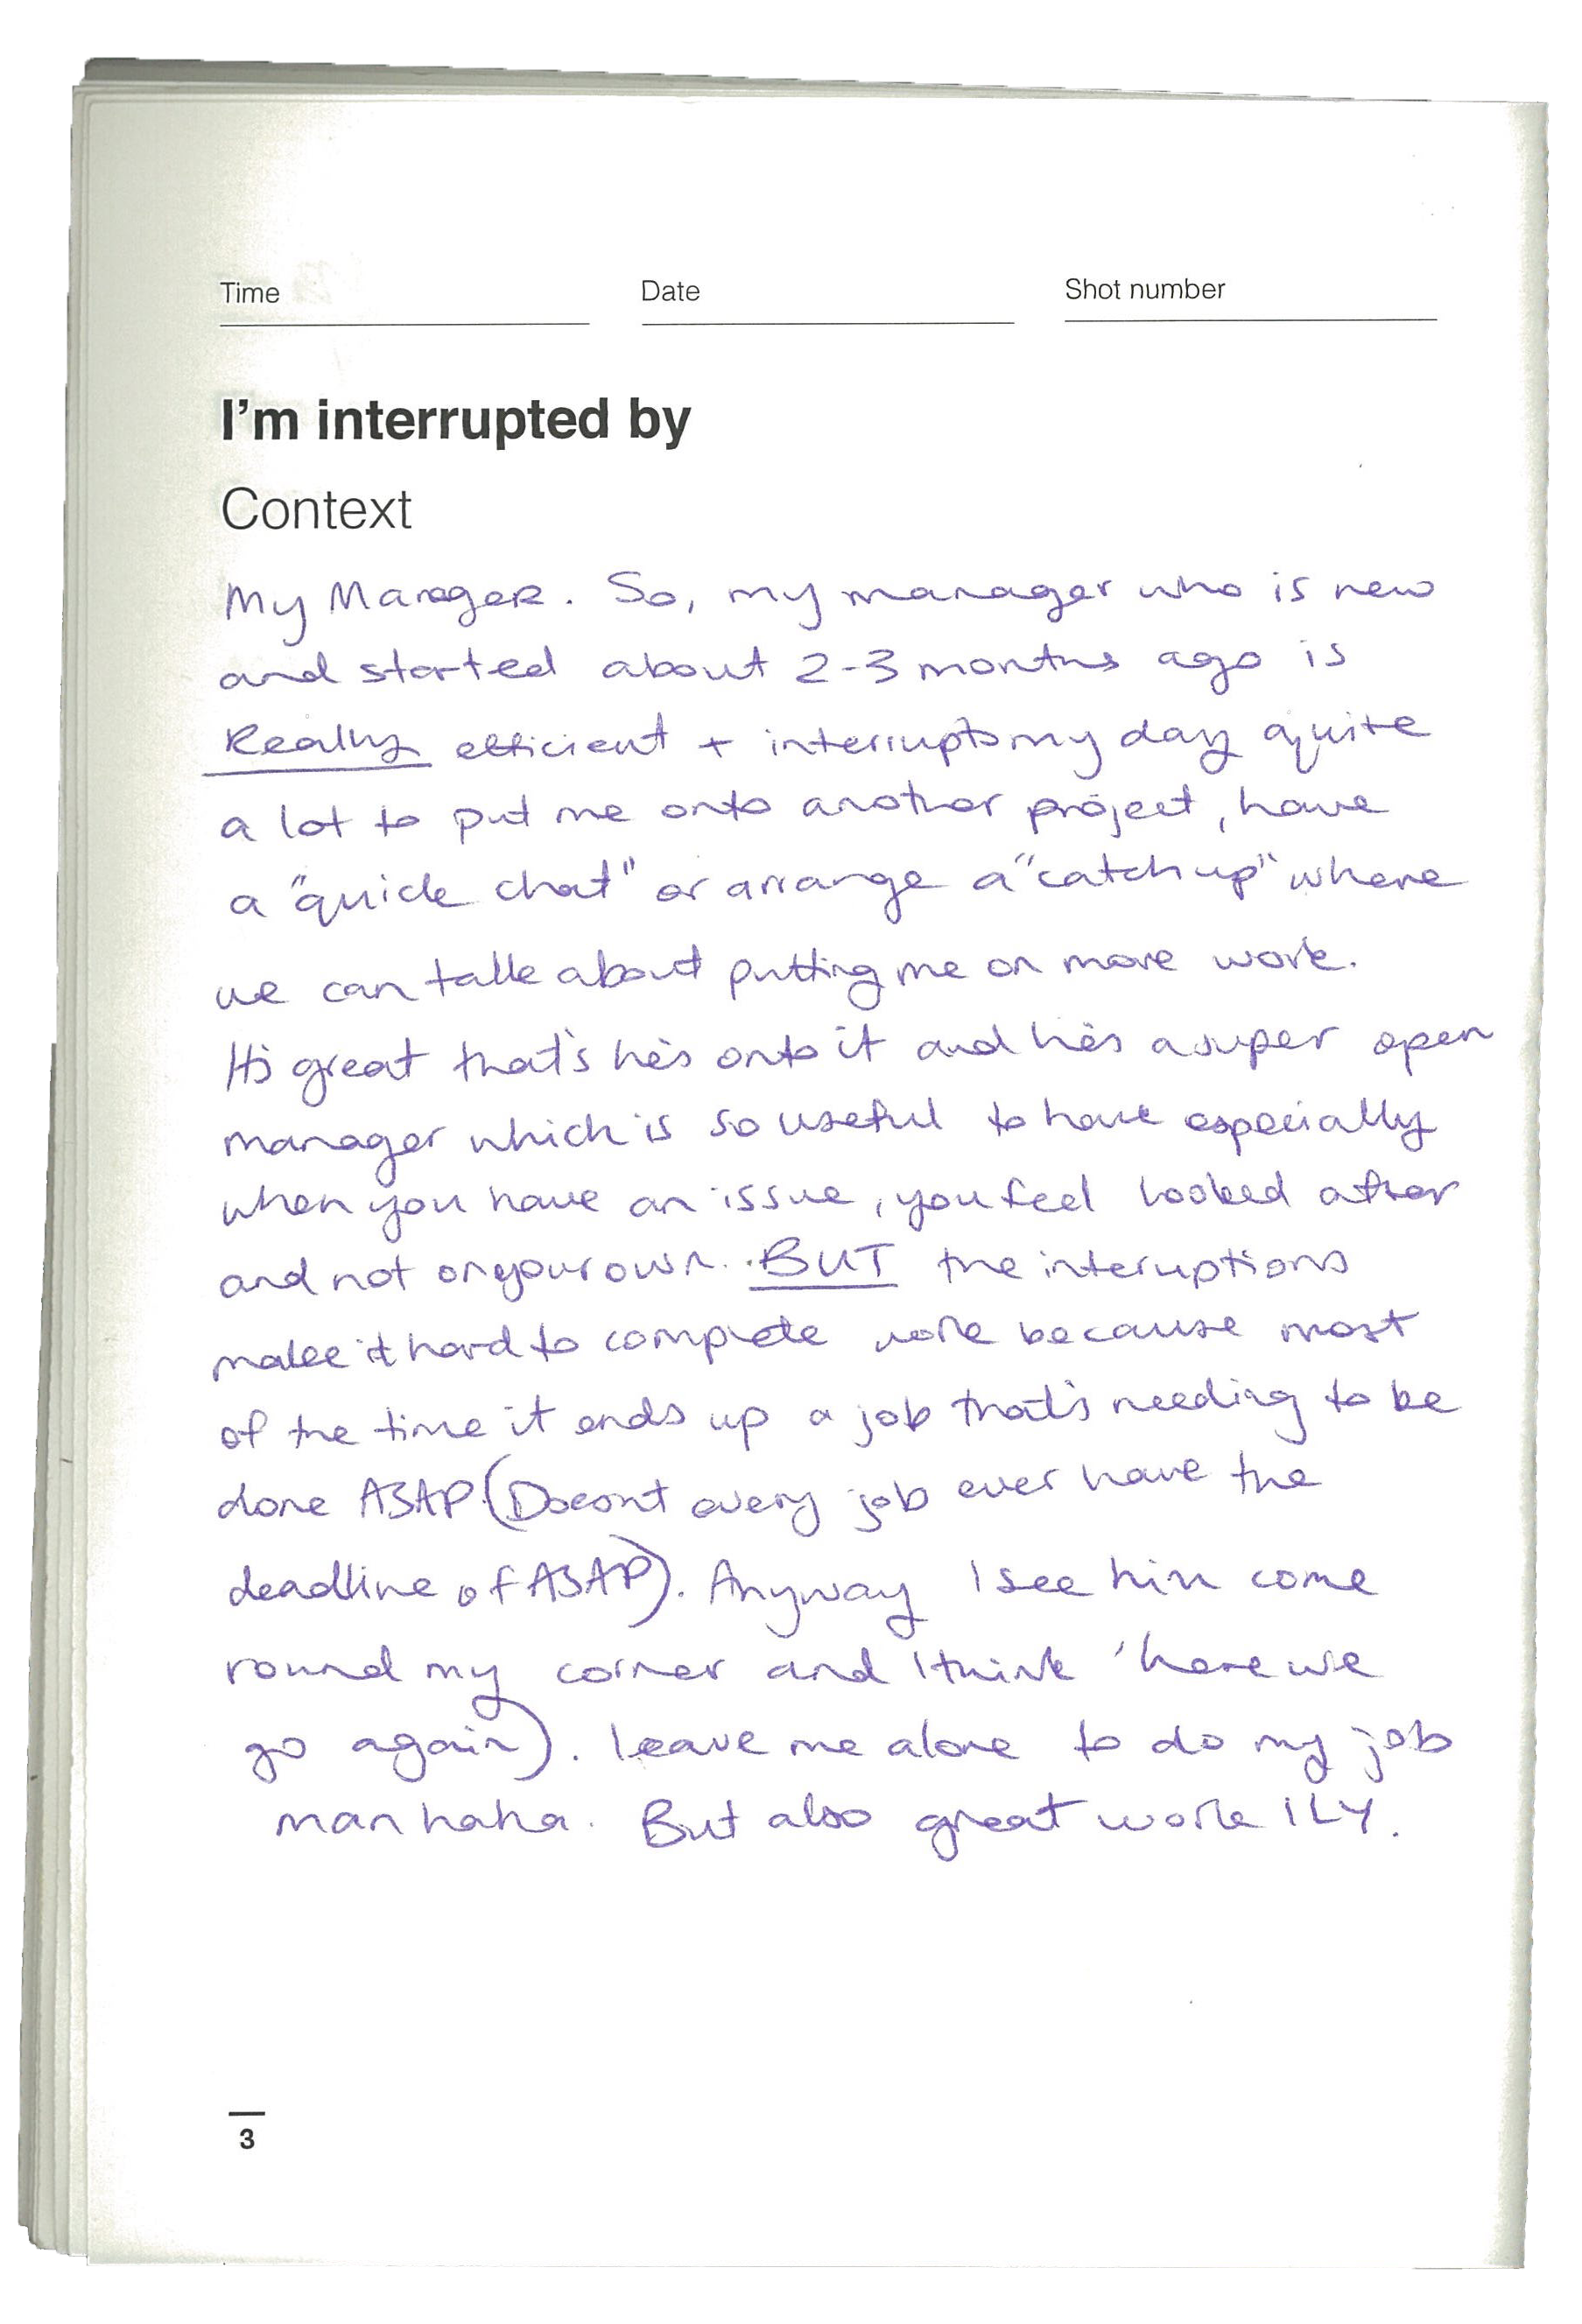 Time Date Shot number
I'm interrupted by
Context
My Manager. So, my manager who is new
and started about 2-3 months ago is
Really efficient + interrupts my day quite
a lot to put me onto another project, have
a "quick chat" or arrange a "catch up" where
we can talk about putting me on more work.
It's great that's he's onto it and he's a super open
manager which is so useful to have especially
when you have an issue, you feel looked after
and not on your own. BUT the interuptions
make it hard to complete work because most
of the time it ends up a job that's needing to be
done ASAP. (Doesnt every job ever have the
deadline of ASAP). Anyway I see him come
round my corner and I think 'here we
go again). leave me alone to do my job
man haha. But also great work ILY.
3